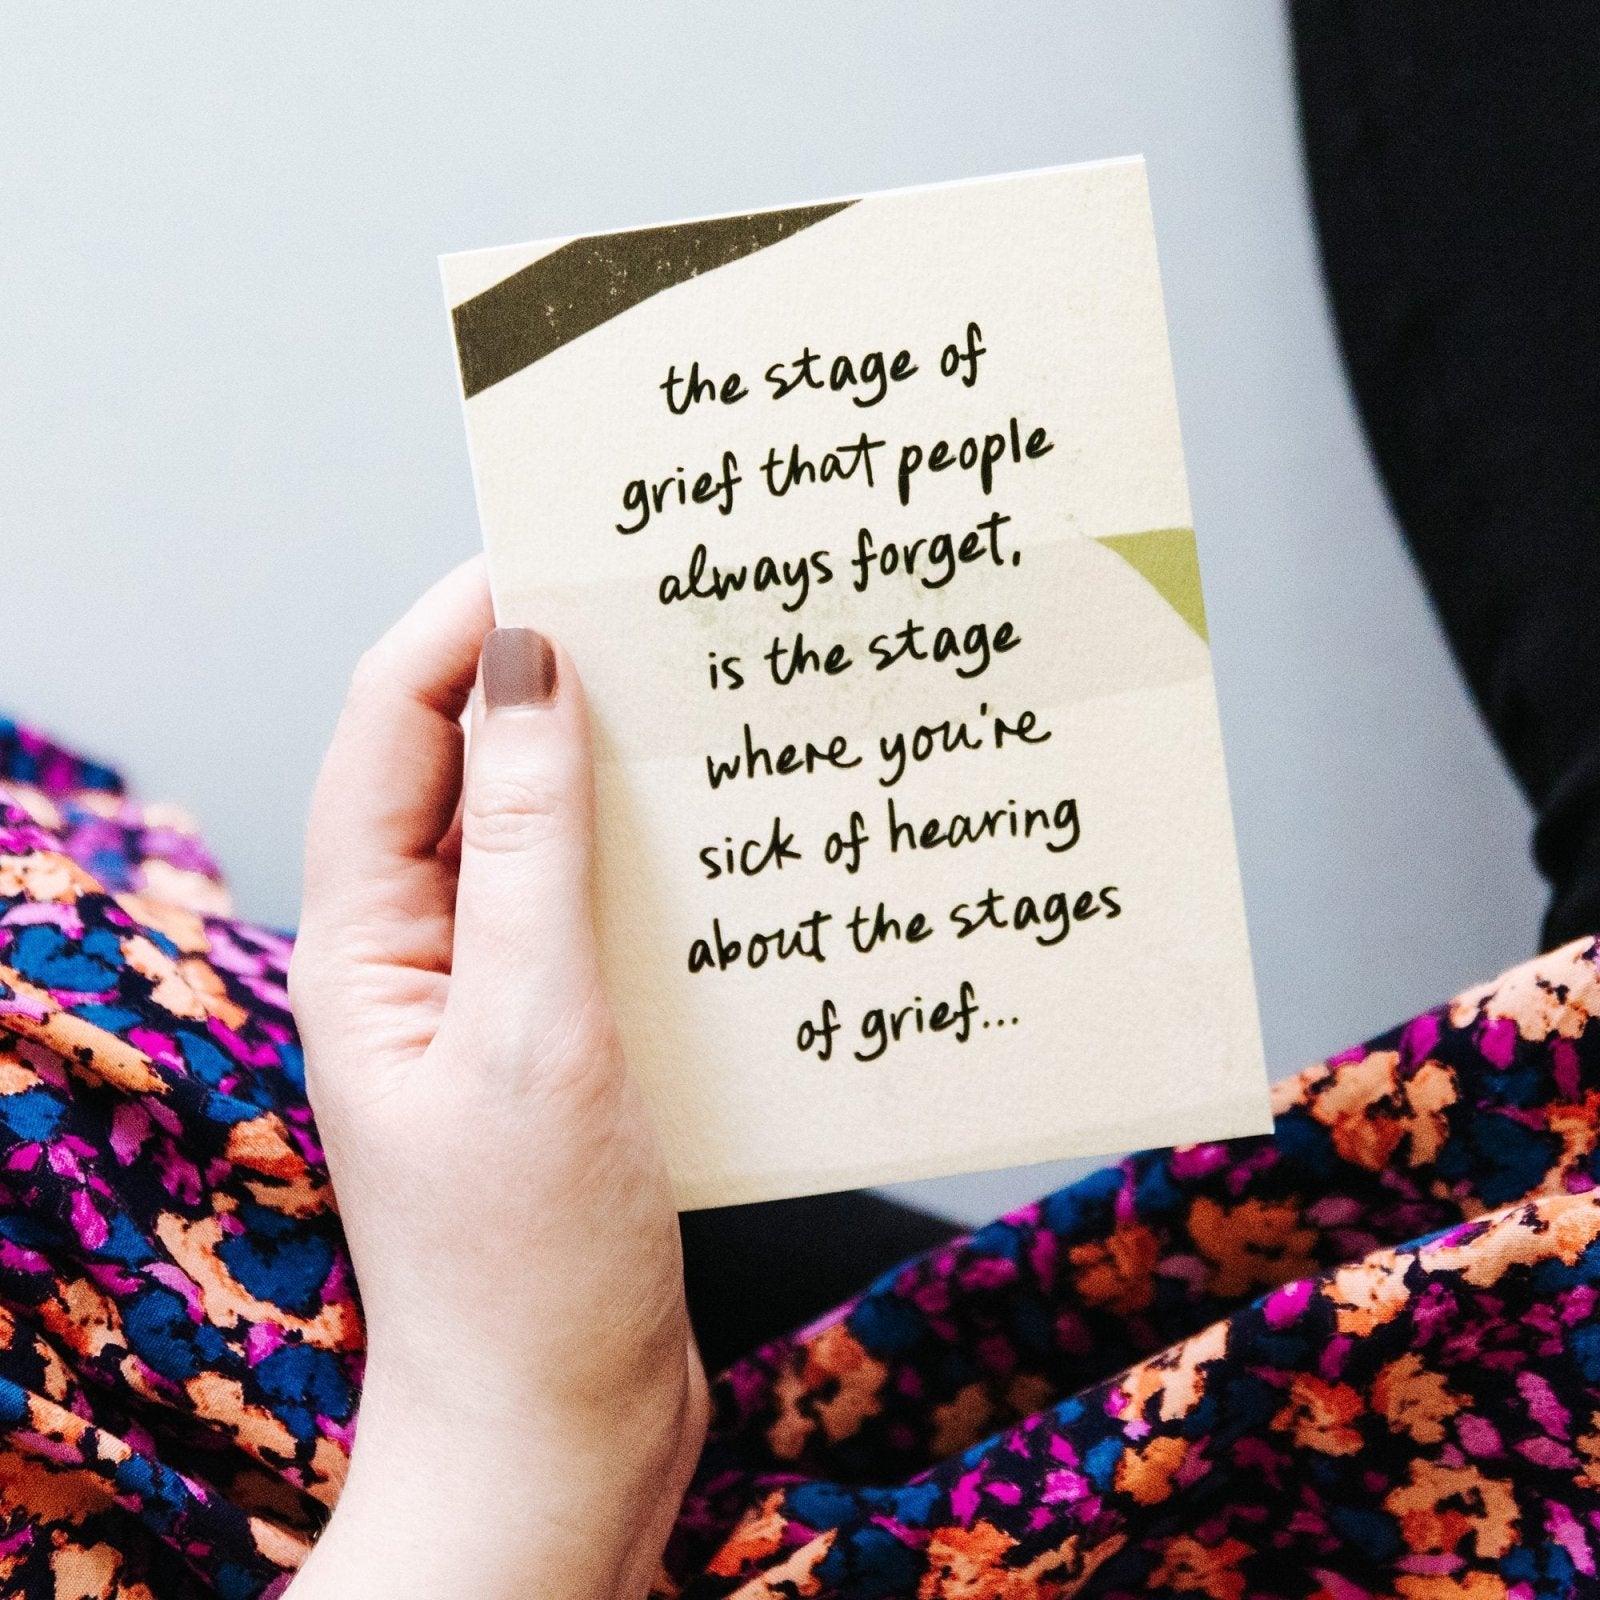 the stage of
grief that people
always forget,
is the stage
where you're
sick of hearing
about the stages
of grief...